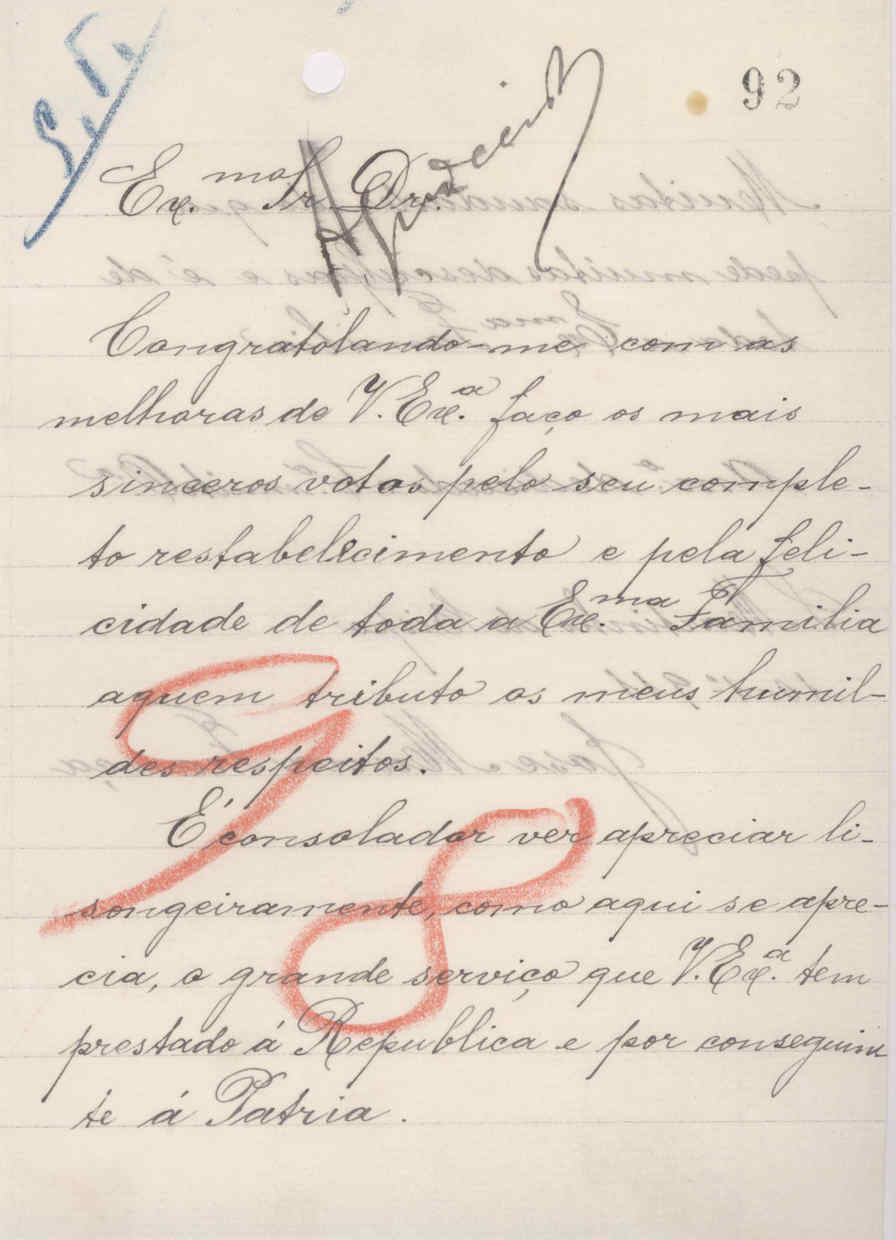 92
Ex.mo Sr. Dr.
Congratolando-me com as
melhoras de V. Exa. faço os mais
sinceros votos pelo seu comple-
to restabelecimento e pela feli-
cidade de toda a Exma. Familia
aquem tributo os meus humil-
des respeitos.
É consolador ver apreciar li-
songeiramente, como aqui se apre-
cia, o grande serviço que V. Exa. tem
prestado á Republica e por conseguin
te á Patria.
98